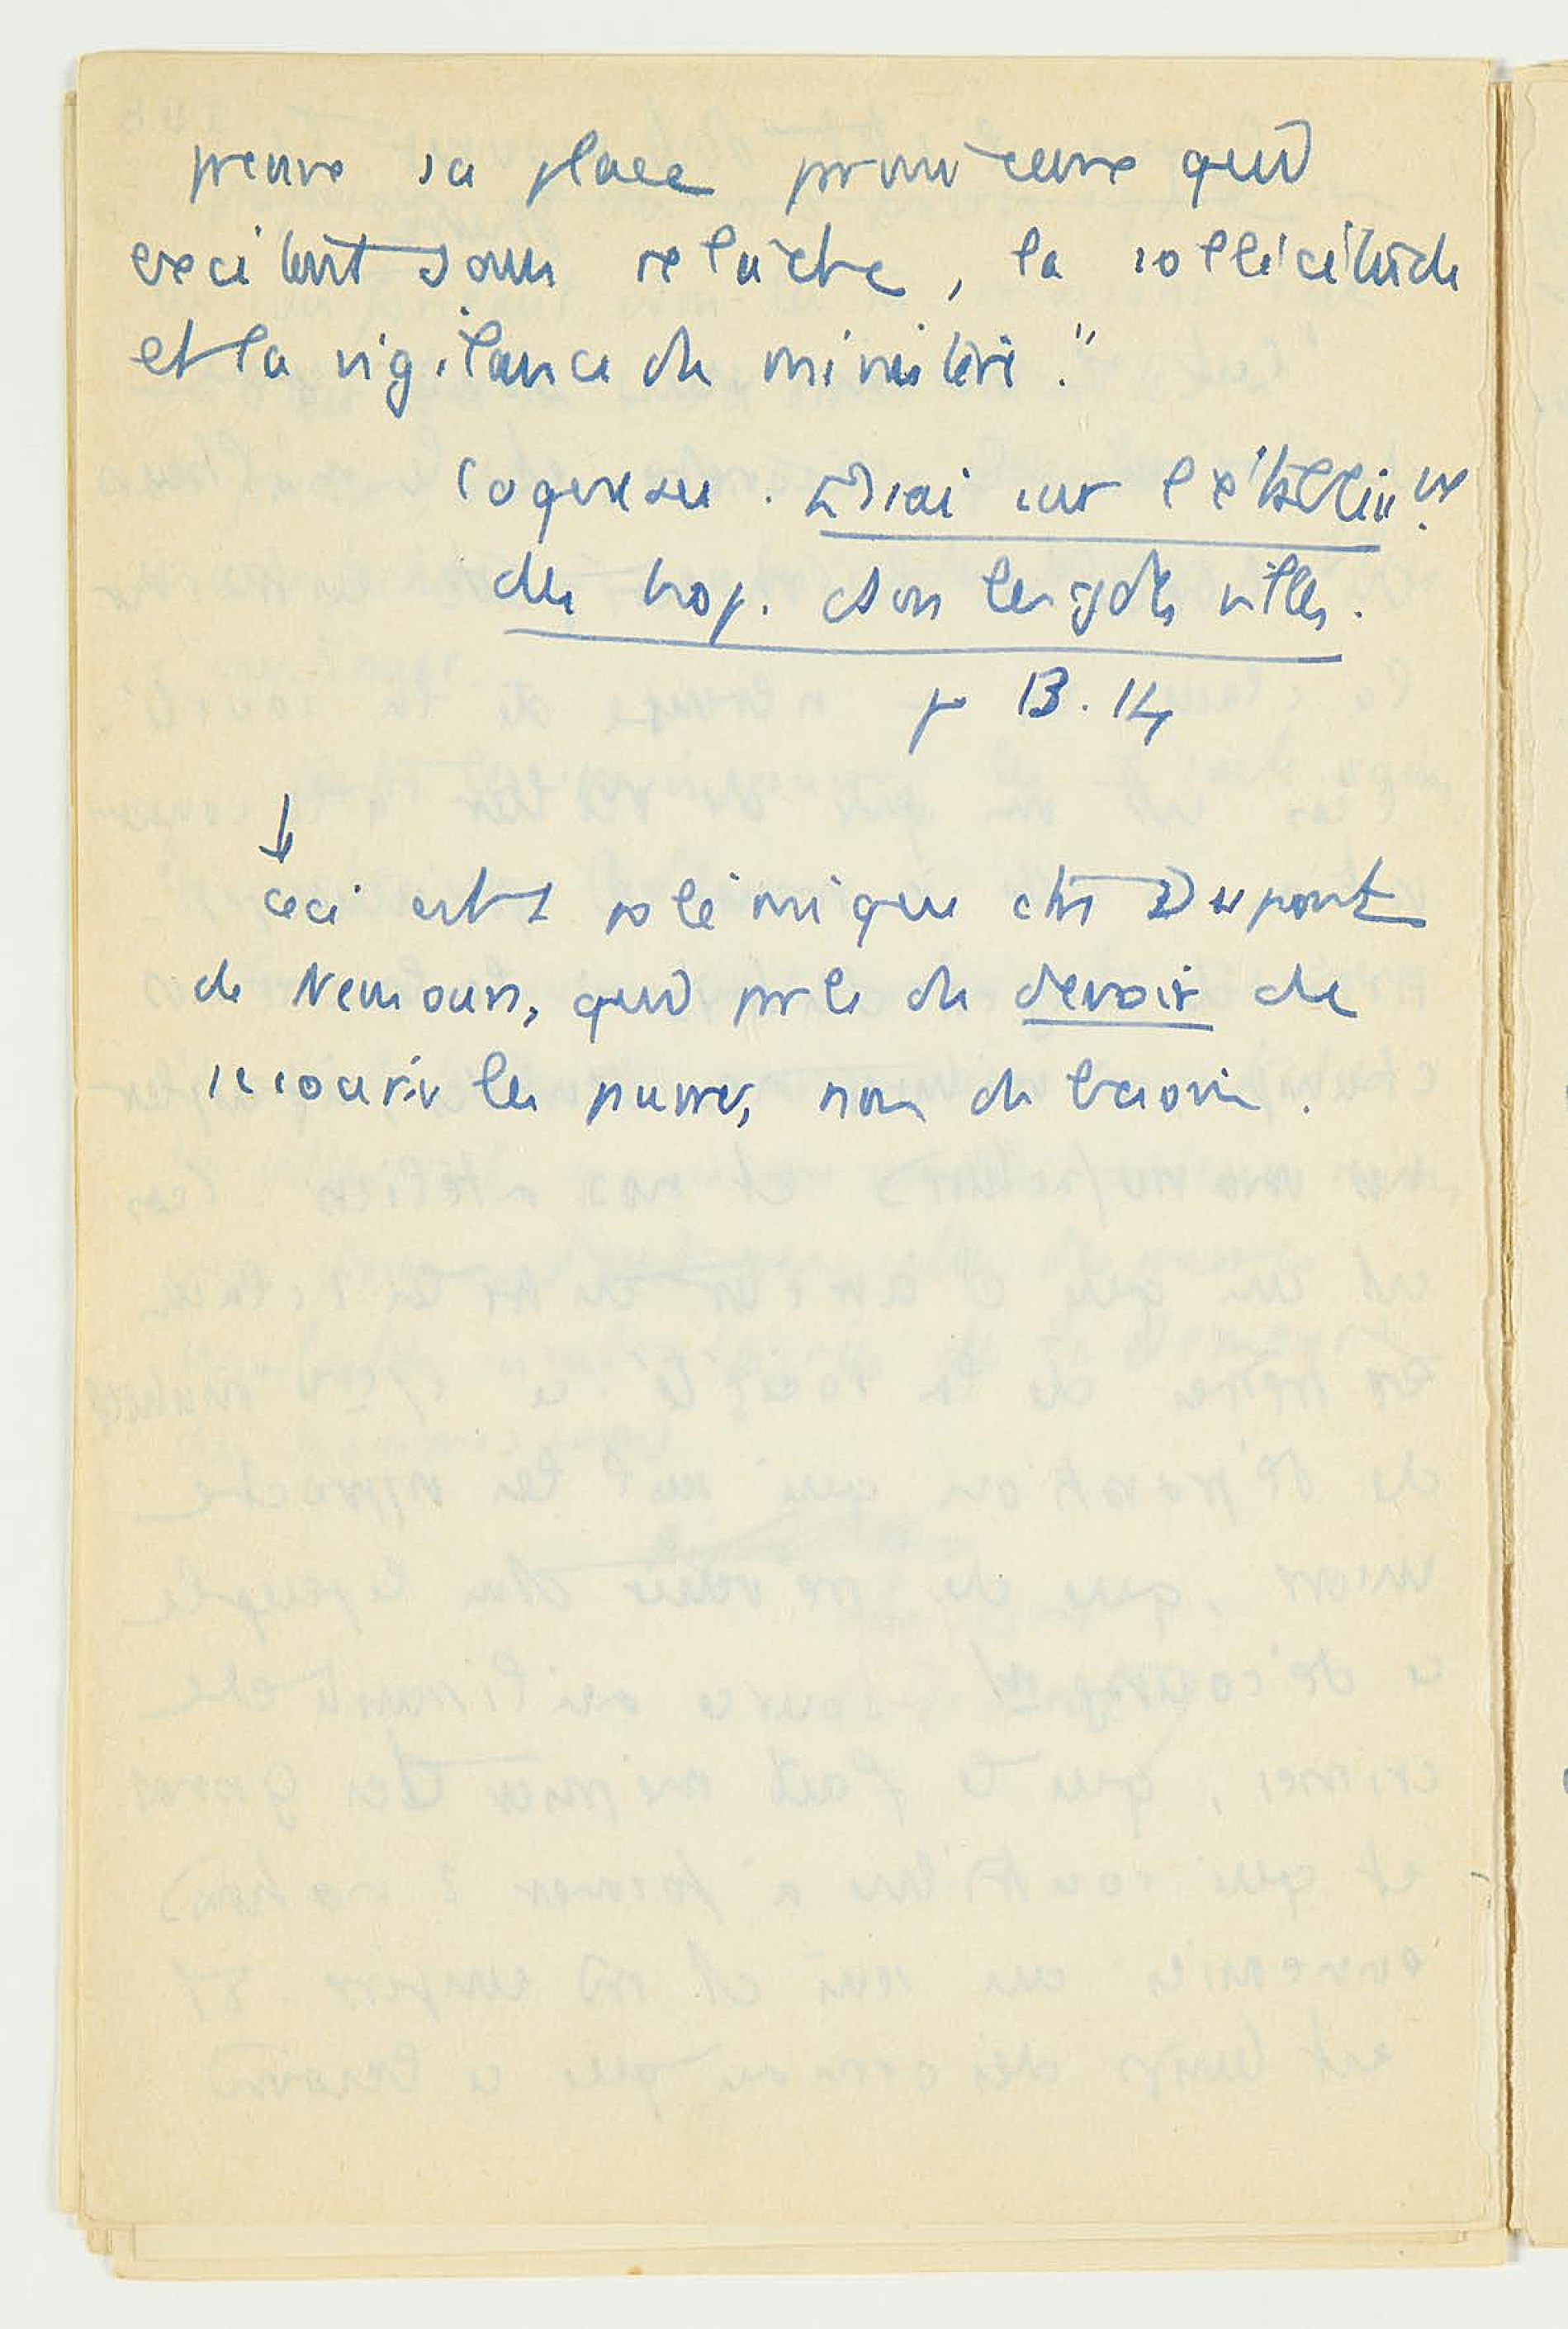 prenne sa place parmi ceux qui
excitent sans relâche, la sollicitude
et la vigilance du ministère."
Coquereau. Essai sur l'établiss
des hop. dans les gdes villes.
p 13.14
↓
ceci est 1 polémique ctr Dupont
de Nemours, qui parle du devoir de
secourir les pauvres, non du besoin.